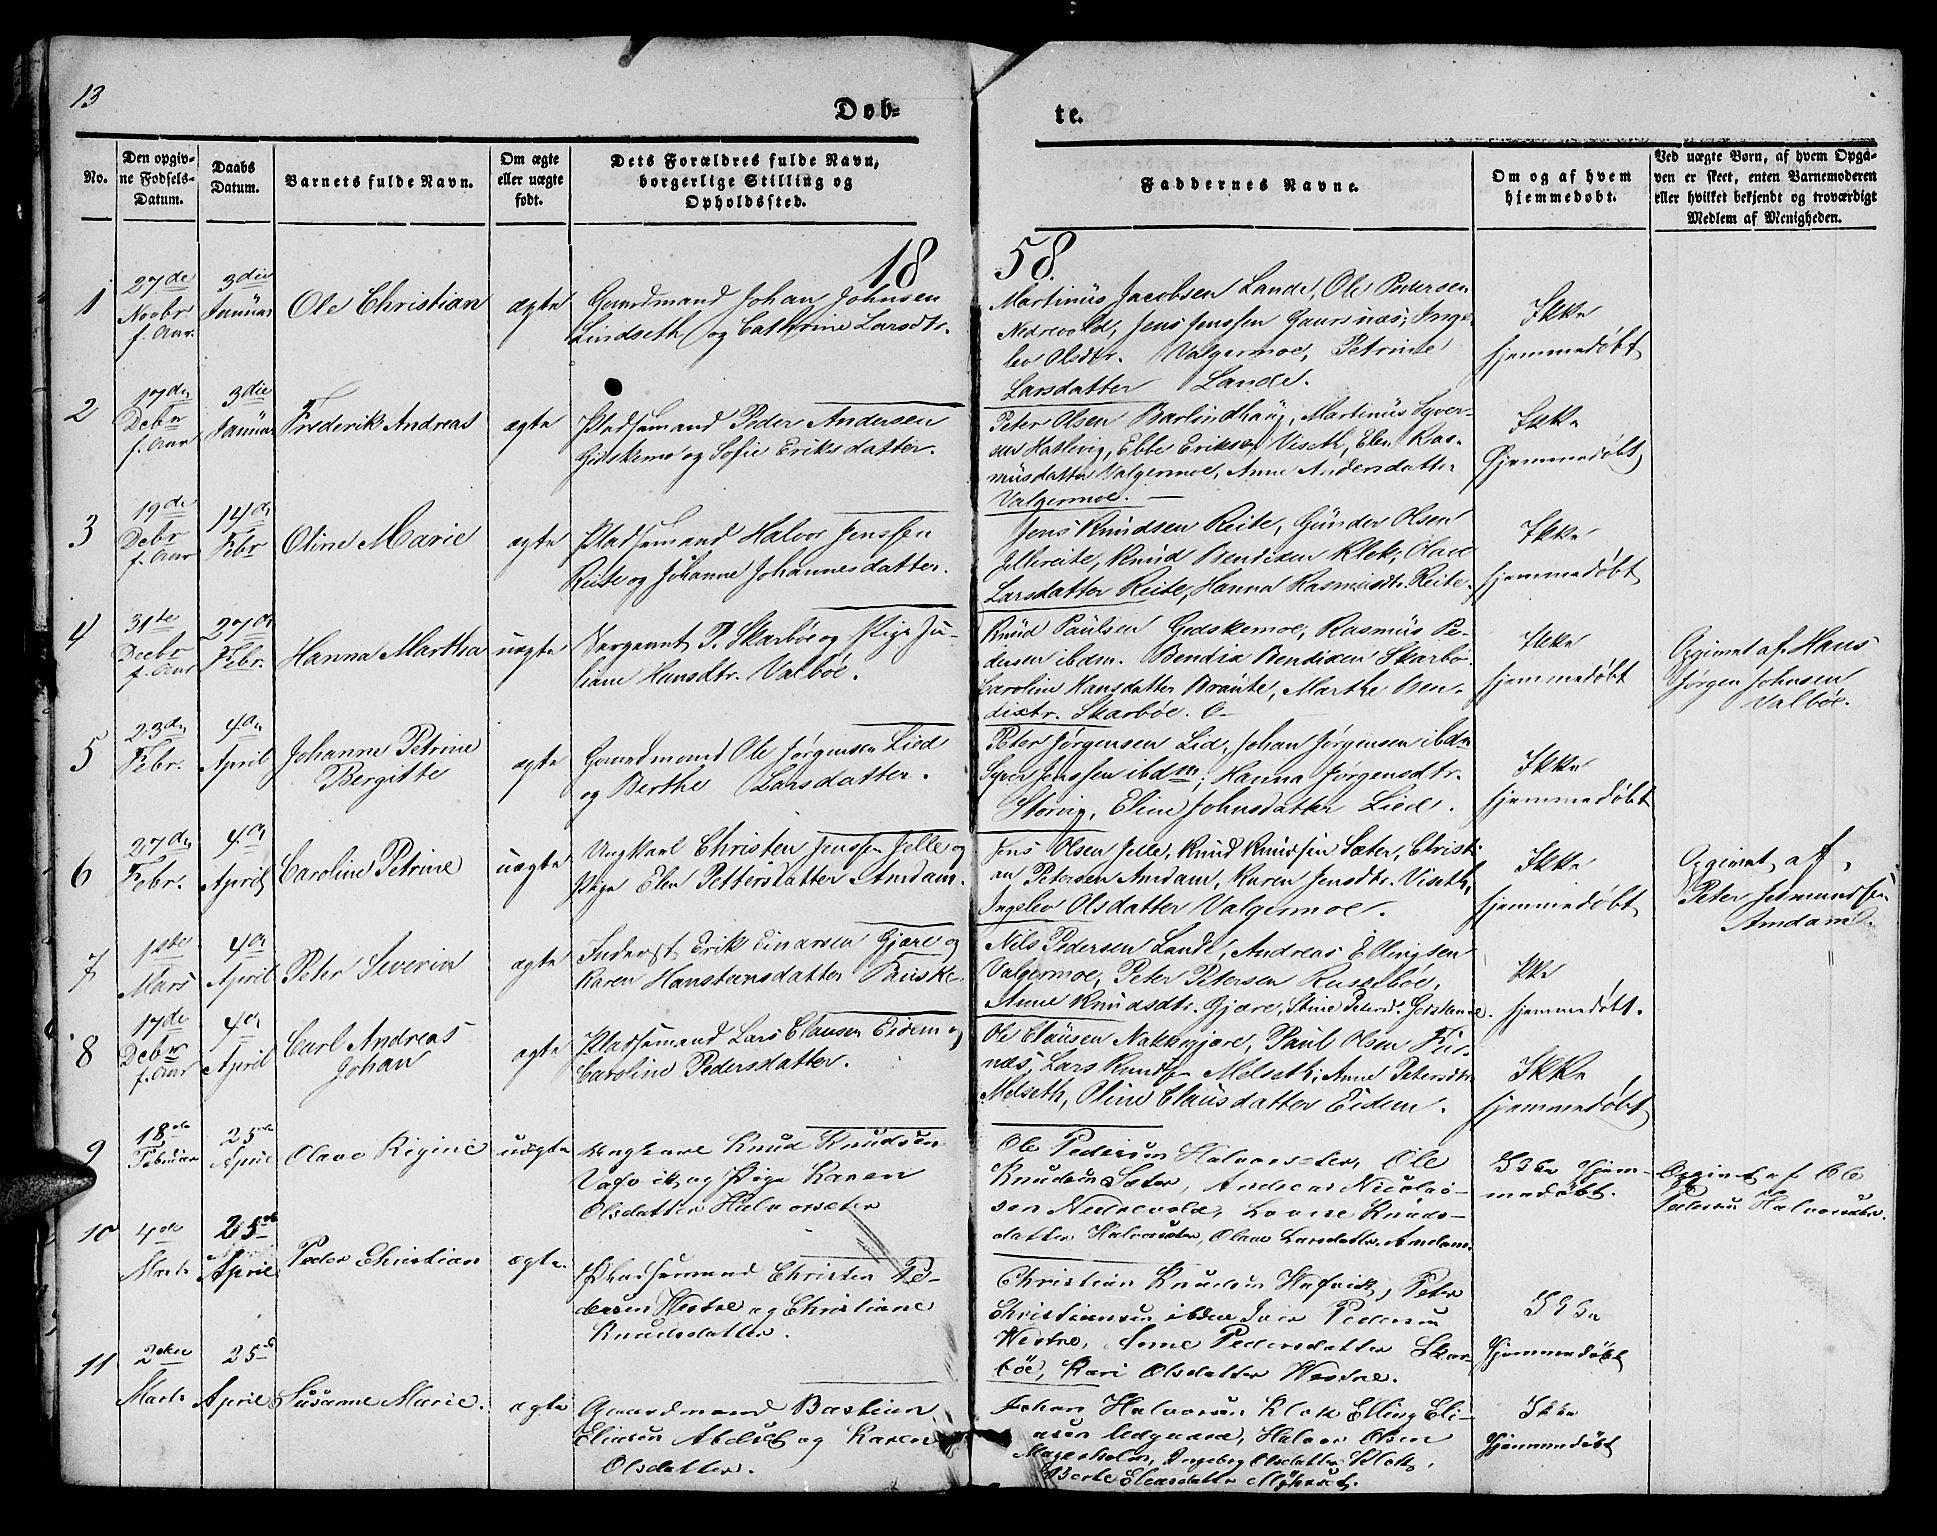 13
Døb-
te.
No.
Den opgiv-
ne Fødsels-
Datum.
Daabs
Datum.
Barnets fulde Navn.
Om ægte
eller uægte
født.
Dets Forældres fulde Navn,
borgerlige Stilling og
Opholdssted.
Faddernes Navne.
Om og af hvem
hjemmedøbt.
Ved uægte Børn, af hvem Opga-
ven er skeet, enten Barnemoderen
eller hvilket bekjendt og troværdigt
Medlem af Menigheden.
18
58.
1
27de
Novbr
f. Aar.
3die
Januar
Ole Christian
ægte
Gaardmand Johan Johnsen
Lindseth og Cathrine Larsdtr.
Martinus Jacobsen Lande, Ole Pedersen
Nedrevold, Jens Jenssen Gaarsnæs, Inge-
lev Olsdtr. Valgermoe, Petrine
Larsdatter Lande.
Ikke
hjemmedøbt
2
17de
Debr
f. Aar
3die
Januar
Frederik Andreas
ægte
Pladsemand Peder Andersen
Gidskemo og Sofie Eriksdatter.
Peter Olsen Barlindhaug, Martinus Syver-
sen Hatlevig, Ebbe Eriksen Viseth, Elen Ras-
musdatter Valgermoe, Anne Andersdatter
Valgermoe.
Ikke
hjemmedøbt
3
19de
Debr
f. Aar
14de
Febr
Oline Marie
ægte
Pladsemand Halvor Jenssen
Reite og Johanne Johannesdatter.
Jens Knudsen Reite, Gunder Olsen
Jellereite, Knud Bendixen Klok, Olave
Larsdatter Reite, Hanna Rasmusdtr. Reite.
Ikke
hjemmedøbt
4
31te
Decbr
f. Aar
27de
Febr.
Hanna Martha
uægte
Sergeant P. Skarbøe og Pige Ju-
liane Hansdtr. Valbøe.
Knud Paulsen Gidskemoe, Rasmus Pe-
dersen ibdm. Bendix Bendixen Skarbø.
Caroline Hansdatter Braute, Marthe Ben-
dixtr. Skarbøe.
Ikke
hjemmedøbt
Opgivet af Hans
Jørgen Johnsen
Valbøe.
5
23de
Febr.
4de
April
Johanne Petrine
Bergitte
ægte
Gaardmand Ole Jørgensen Lied
og Berthe Larsdatter.
Peter Jørgensen Lid, Johan Jørgensen ibdm
Syver Jenssen ibdm, Hanna Jørgensdtr.
Storvig, Eline Johnsdatter Lied.
Ikke
hjemmedøbt
6
27de
Febr.
4de
April
Caroline Petrine
uægte
Ungkarl Christen Jenssen Jelle og
Pige Elen Pettersdatter Amdam.
Jens Olsen Jelle, Knud Knudsen Sæter, Christi-
an Petersen Amdam, Karen Jensdtr. Viseth,
Ingelev Olsdatter Valgermoe.
Ikke
hjemmedøbt
Opgivet af
Peter
Amdam.
7
1ste
Mars
4de
April
Peter Severin
ægte
Inderst Erik Einarsen Gjære og
Karen Hanstensdatter
Nils Pedersen Lande, Andreas Ellingsen
Valgermoe, Peter Petersen Russebøe,
Anne Knudsdtr. Gjære, Stine Petersd.
Ikke
hjemmedøbt.
8
17de
Debr
f. Aar
4de
April
Carl Andreas
Johan
ægte
Pladsemand Lars Clausen Eidem og
Caroline Pedersdatter.
Ole Clausen Nakkegjære, Paul Olsen Fur-
næs, Lars Knudsen Melseth, Anne Petersdtr.
Melseth, Oline Clausdatter Eidem.
Ikke
hjemmedøbt
9
18de
Februar
25de
April
Olave Regine
uægte
Ungkare Knud Knudsen
og Pige Karen
Olsdatter Halvorsæter
Ole Pedersen Halvorsæter, Ole
Knudsen Sæter, Andreas Nicolai-
sen Nedrevold, Lovise Knuds-
datter Halvorsæter, Olave Larsdatter Amdam.
Ikke hjem-
medøbt.
Opgivet af Ole
Pedersen Halvorsæter.
10
4de
Marts
25de
April
Peder Christian
ægte.
Pladsemand Christen Pe-
dersen Westre og Christiane
Knudsdatter.
Christian Knudsen Hofvik, Peter
Christiansen ibdm Iver Pedersen
Westre, Anne Pedersdatter Skar-
bøe, Kari Olsdatter Westre.
Ikke
hjemmedøbt
11
2den
Marts
25de
April
Susanne Marie.
ægte
Gaardmand Bastian
Eliasen Abelset og Karen
Olsdatter.
Johan Halvorsen Klok Elling Eli-
asen Udgaard, Halvor Olsen
Ingeborg Olsdatter Klok,
Berte Eliasdatter
Ikke
hjemmedøbt